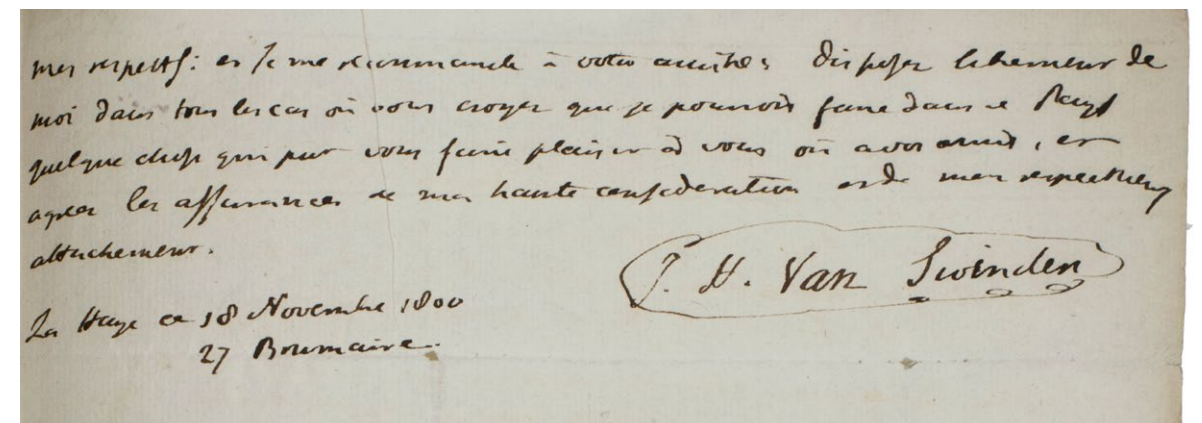 mes respects: et je me recommande à votre amitié: disposez librement de
moi dans tous les cas où vous croyez que je pourrois faire dans ce Pays
quelque chose qui put vous faire plaisir à vous où a vos amis, et
agreez les assurances de ma haute consideration et de mon respectueux
attachement.
J. H. Van Swinden
La Haye ce 18 Novembre 1800
27 Brumaire.